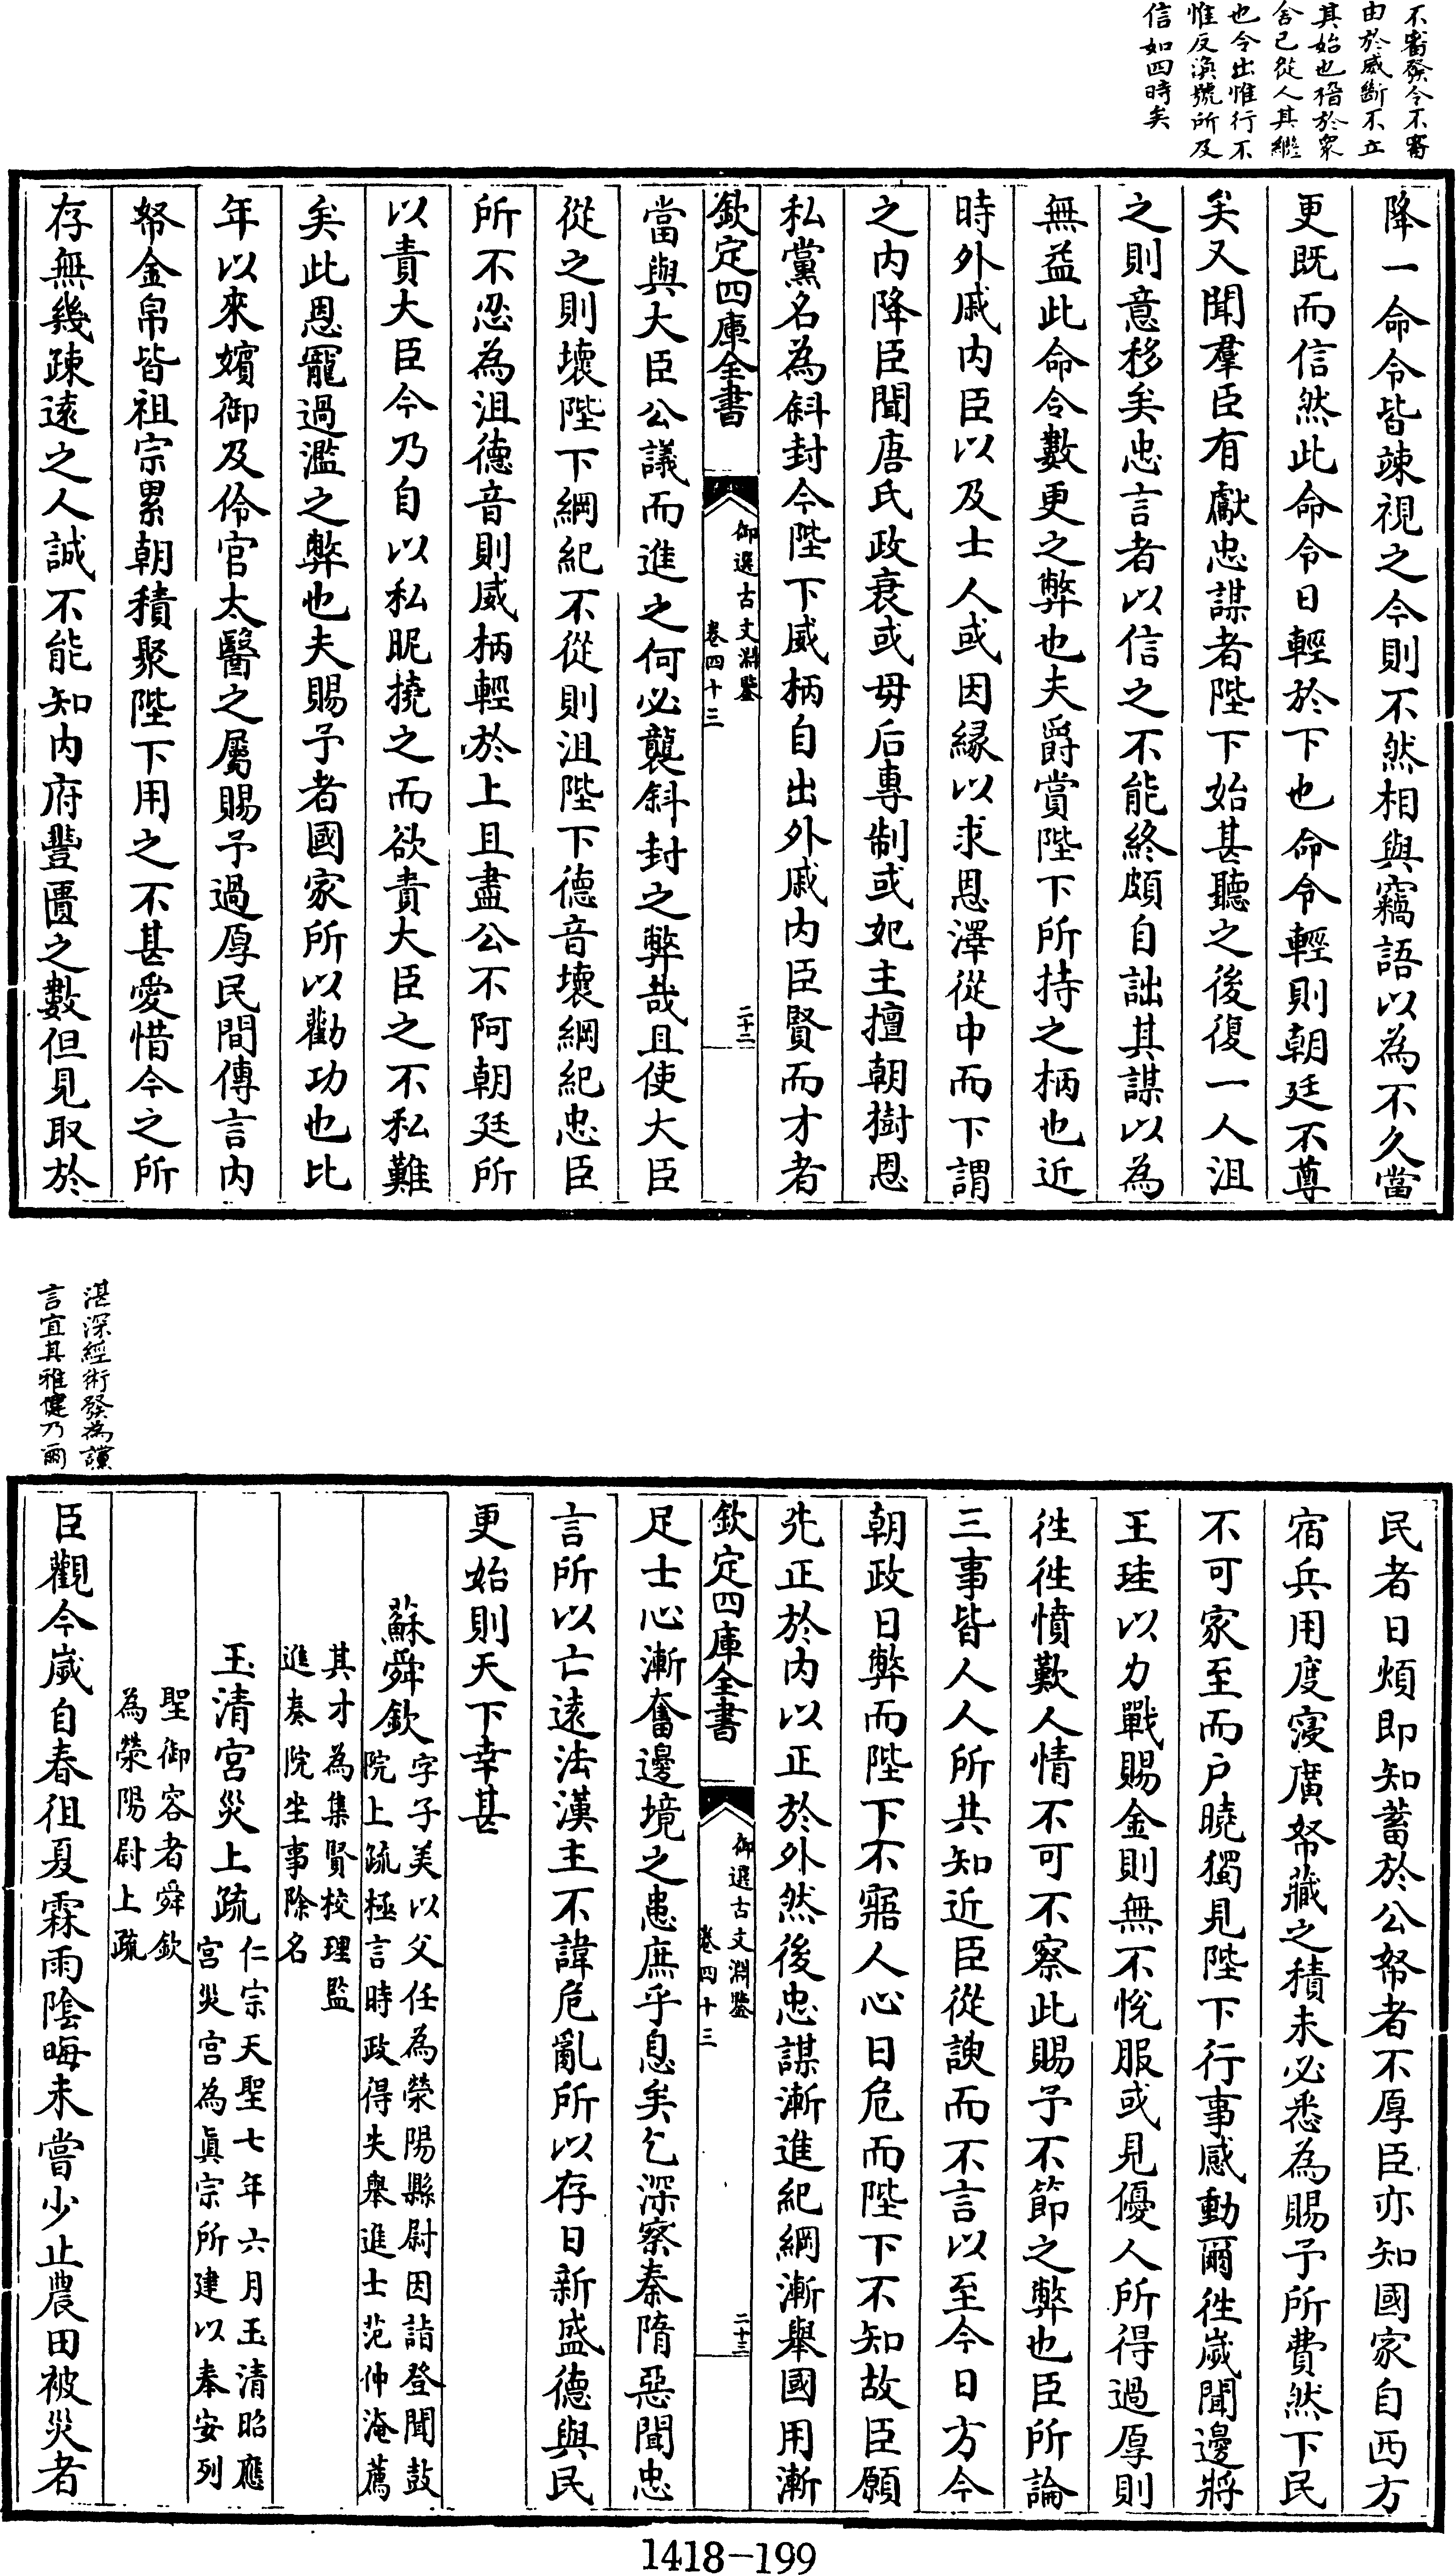 不審發令不審
由於威斷不立
其始也稽於衆
舍已從人其繼
也令出惟行不
惟反渙號所及
信如四時矣
降一命令皆竦視之今則不然相與竊語以為不久當
更既而信然此命令日輕於下也命令輕則朝廷不尊
矣又聞羣臣有獻忠謀者陛下始甚聽之後復一人沮
之則意移矣忠言者以信之不能終頗自詘其謀以為
無益此命令數更之弊也夫爵賞陛下所持之柄也近
時外戚内臣以及士人或因緣以求恩澤從中而下謂
之内降臣聞唐氏政衰或毋后專制或妃主擅朝樹恩
私黨名為斜封今陛下威柄自出外戚内臣賢而才者
欽定四庫全書
御選古文淵鑒
卷四十三
二十二
當與大臣公議而進之何必襲斜封之弊哉且使大臣
從之則壞陛下綱紀不從則沮陛下德音壞綱紀忠臣
所不忍為沮德音則威柄輕於上且盡公不阿朝廷所
以責大臣今乃自以私昵撓之而欲責大臣之不私難
矣此恩寵過濫之弊也夫賜予者國家所以勸功也比
年以來嬪御及伶官太醫之屬賜予過厚民間傳言内
帑金帛皆祖宗累朝積聚陛下用之不甚愛惜今之所
存無幾疎遠之人誠不能知内府豐匱之數但見取於
湛深經術發為讜
言宜其雅健乃爾
民者日煩即知蓄於公帑者不厚臣亦知國家自西方
宿兵用度寖廣帑藏之積未必悉為賜予所費然下民
不可家至而戶曉獨見陛下行事感動爾徃歲聞邊將
王珪以力戰賜金則無不悅服或見優人所得過厚則
徃徃憤歎人情不可不察此賜予不節之弊也臣所論
三事皆人人所共知近臣從諛而不言以至今日方今
朝政日弊而陛下不寤人心日危而陛下不知故臣願
先正於内以正於外然後忠謀漸進紀綱漸舉國用漸
欽定四庫全書
御選古文淵鑒
卷四十三
二十三
足士心漸奮邊境之患庶乎息矣乞深察秦隋惡聞忠
言所以亡遠法漢主不諱危亂所以存日新盛德與民
更始則天下幸甚
蘇舜欽字子美以父任為滎陽縣尉因詣登聞鼓
院上疏極言時政得失舉進士范仲淹薦
其才為集賢校理監
進奏院坐事除名
玉清宮災上疏仁宗天聖七年六月玉清昭應
宮災宮為真宗所建以奉安列
聖御容者舜欽
為滎陽尉上疏
臣觀今歲自春徂夏霖雨陰晦未嘗少止農田被災者
1418-199